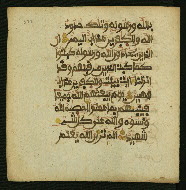 بالله ورسوله وتلك حدود
الله وللكفرين عذاب اليم ان
الذين يحادون الله ورسوله كبتوا
كما كبت الذين من قبلهم وقد
انزلنا ءايت بينت وللكفرين عذاب
مهين يوم يبعثهم الله جميعا
فينبئهم بما عملوا احصيه الله
ونسوه والله على كل شيء
شهيد الم تر ان الله يعلم